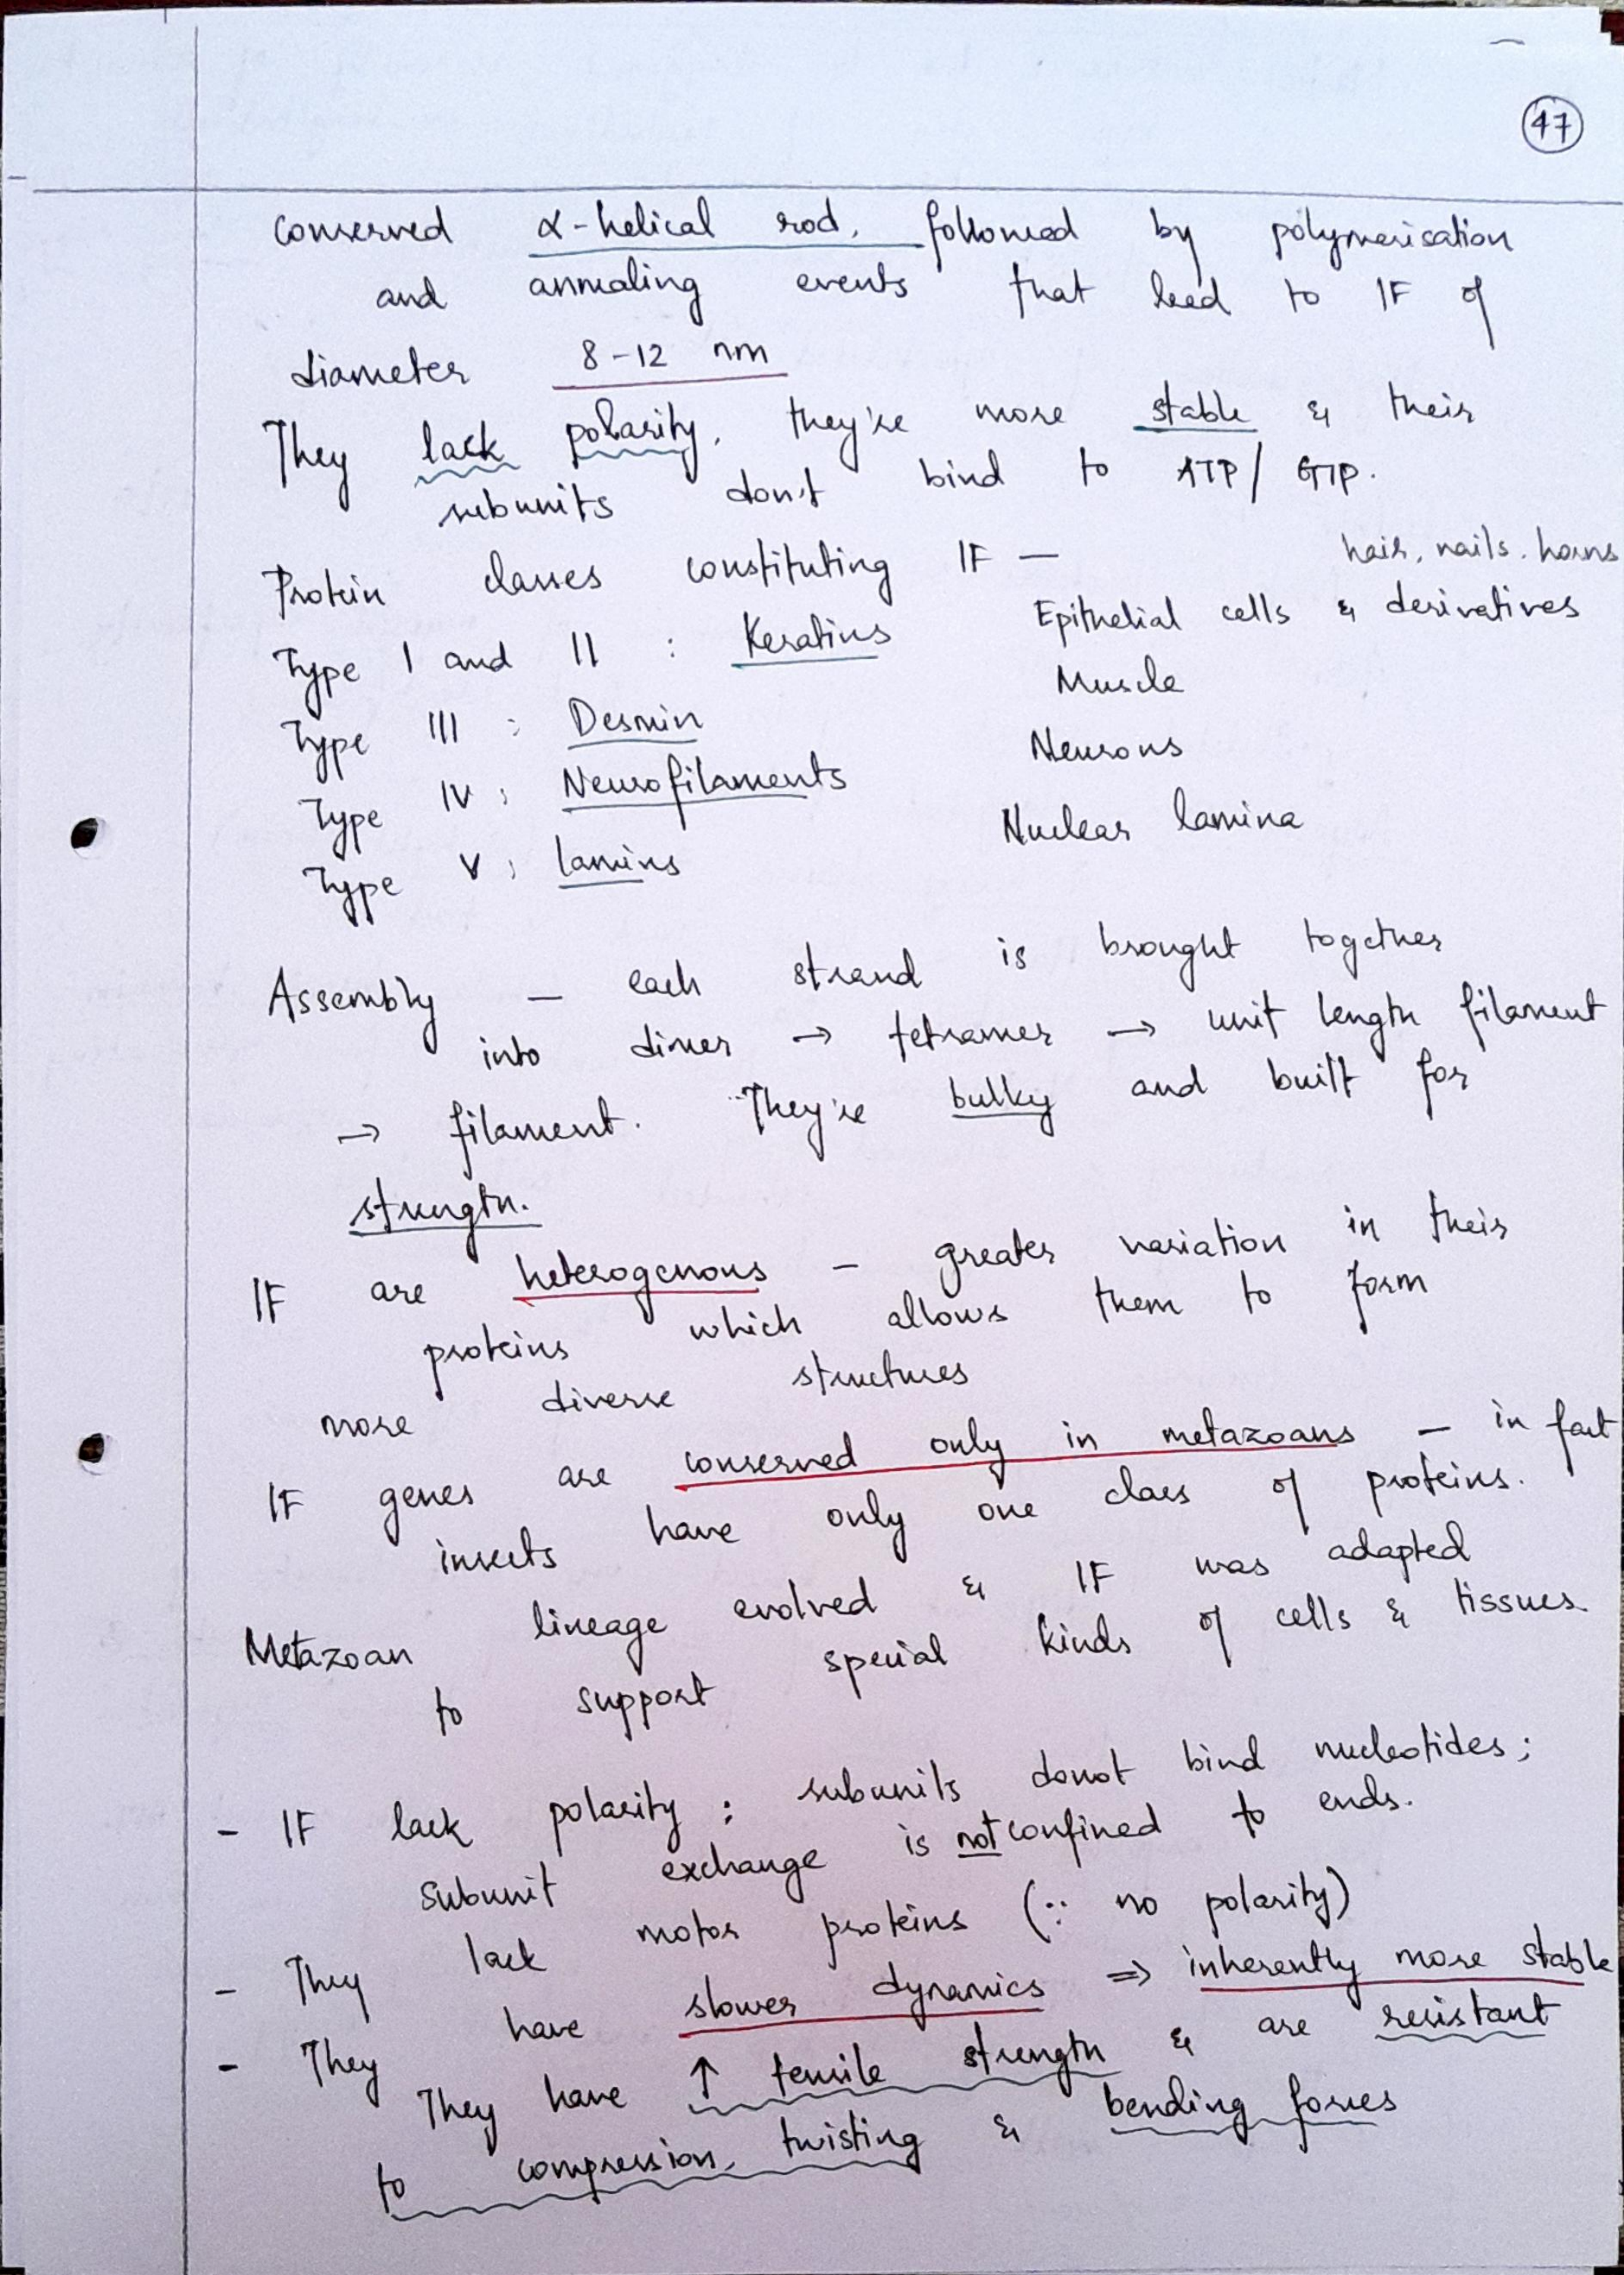 47
conserved α-helical rod, followed by polymerisation
and annealing events that lead to IF of
diameter 8-12 nm
They lack polarity, they're more stable & their
subunits don't bind to ATP/ GTP.
Protein classes constituting IF —
hair, nails, horns
Type I and II : Keratins Epithelial cells & derivatives
Type III : Desmin Muscle
Type IV : Neurofilaments Neurons
Type V : lamins Nuclear lamina
Assembly — each strand is brought together
into dimer → tetramer → unit length filament
→ filament. They're bulky and built for
strength.
IF are heterogenous – greater variation in their
proteins which allows them to form
more diverse structures
IF genes are conserved only in metazoans — in fact
insects have only one class of proteins.
Metazoan lineage evolved & IF was adapted
to support special kinds of cells & tissues
- IF lack polarity ; subunits donot bind nucleotides ;
subunit exchange is not confined to ends.
- They lack motor proteins (∵ no polarity)
- They have slower dynamics ⇒ inherently more stable
They have ↑ tensile strength & are resistant
to compression, twisting & bending forces